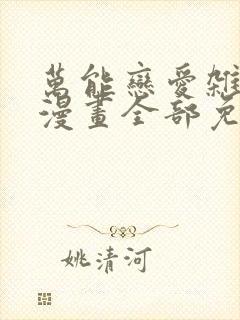 萬能戀愛雜
漫畫全部免
姚清河